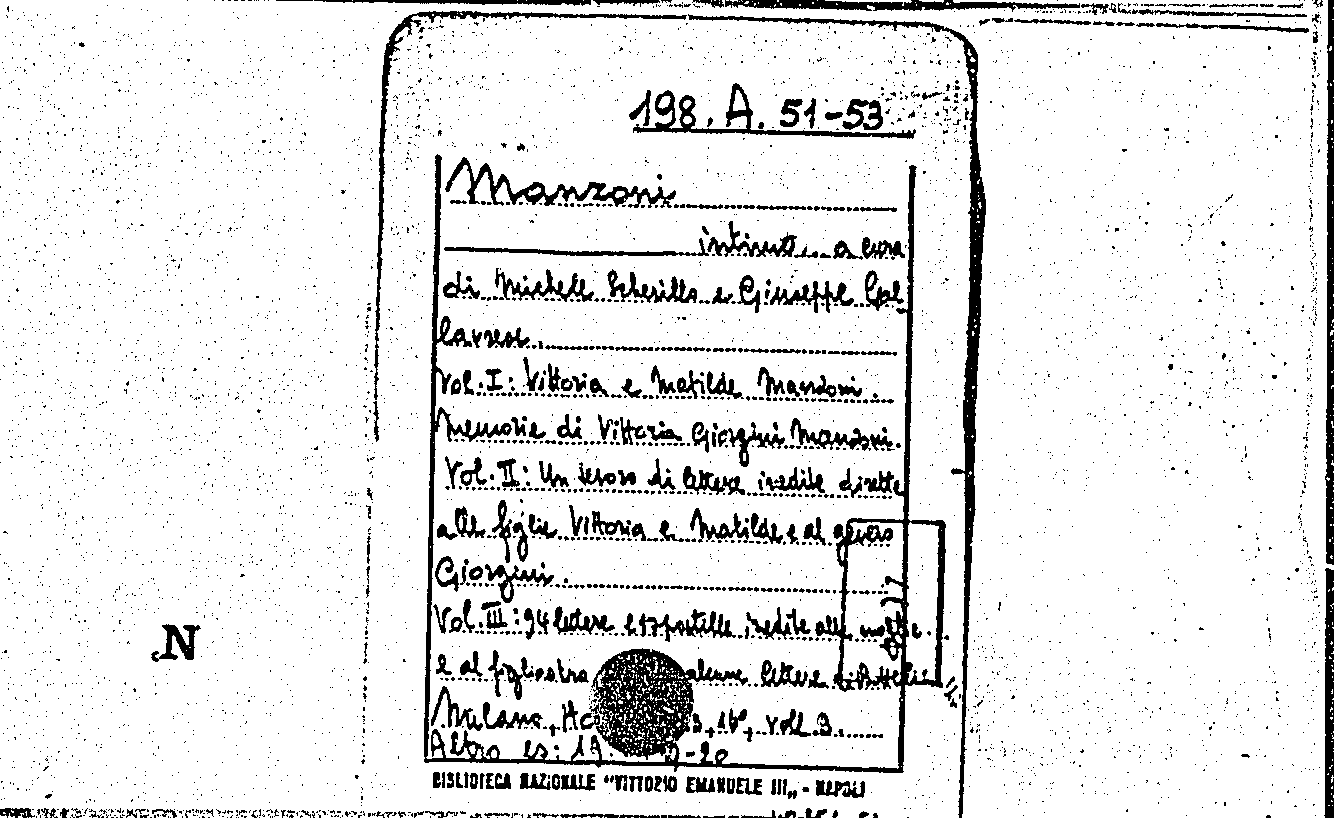 198. A. 51-53
Manzoni
intimo... a cura
di Michele Scherillo e Giuseppe Gal
lavresi.
Vol. I: Vittoria e Matilde Manzoni.
Memorie di Vittoria Giorgini Manzoni.
Vol. II: Un tesoro di lettere inedite dirette
alle figlie Vittoria e Matilde e al genero
Giorgini.
Vol. III: 94 lettere e 17 postille inedite alla moglie
e al figliastro alcune lettere
Milano, Ho 3, 16°, voll. 3.
Altro es: 19. -20
BIBLIOTECA NAZIONALE "VITTORIO EMANUELE III„ - NAPOLI
N